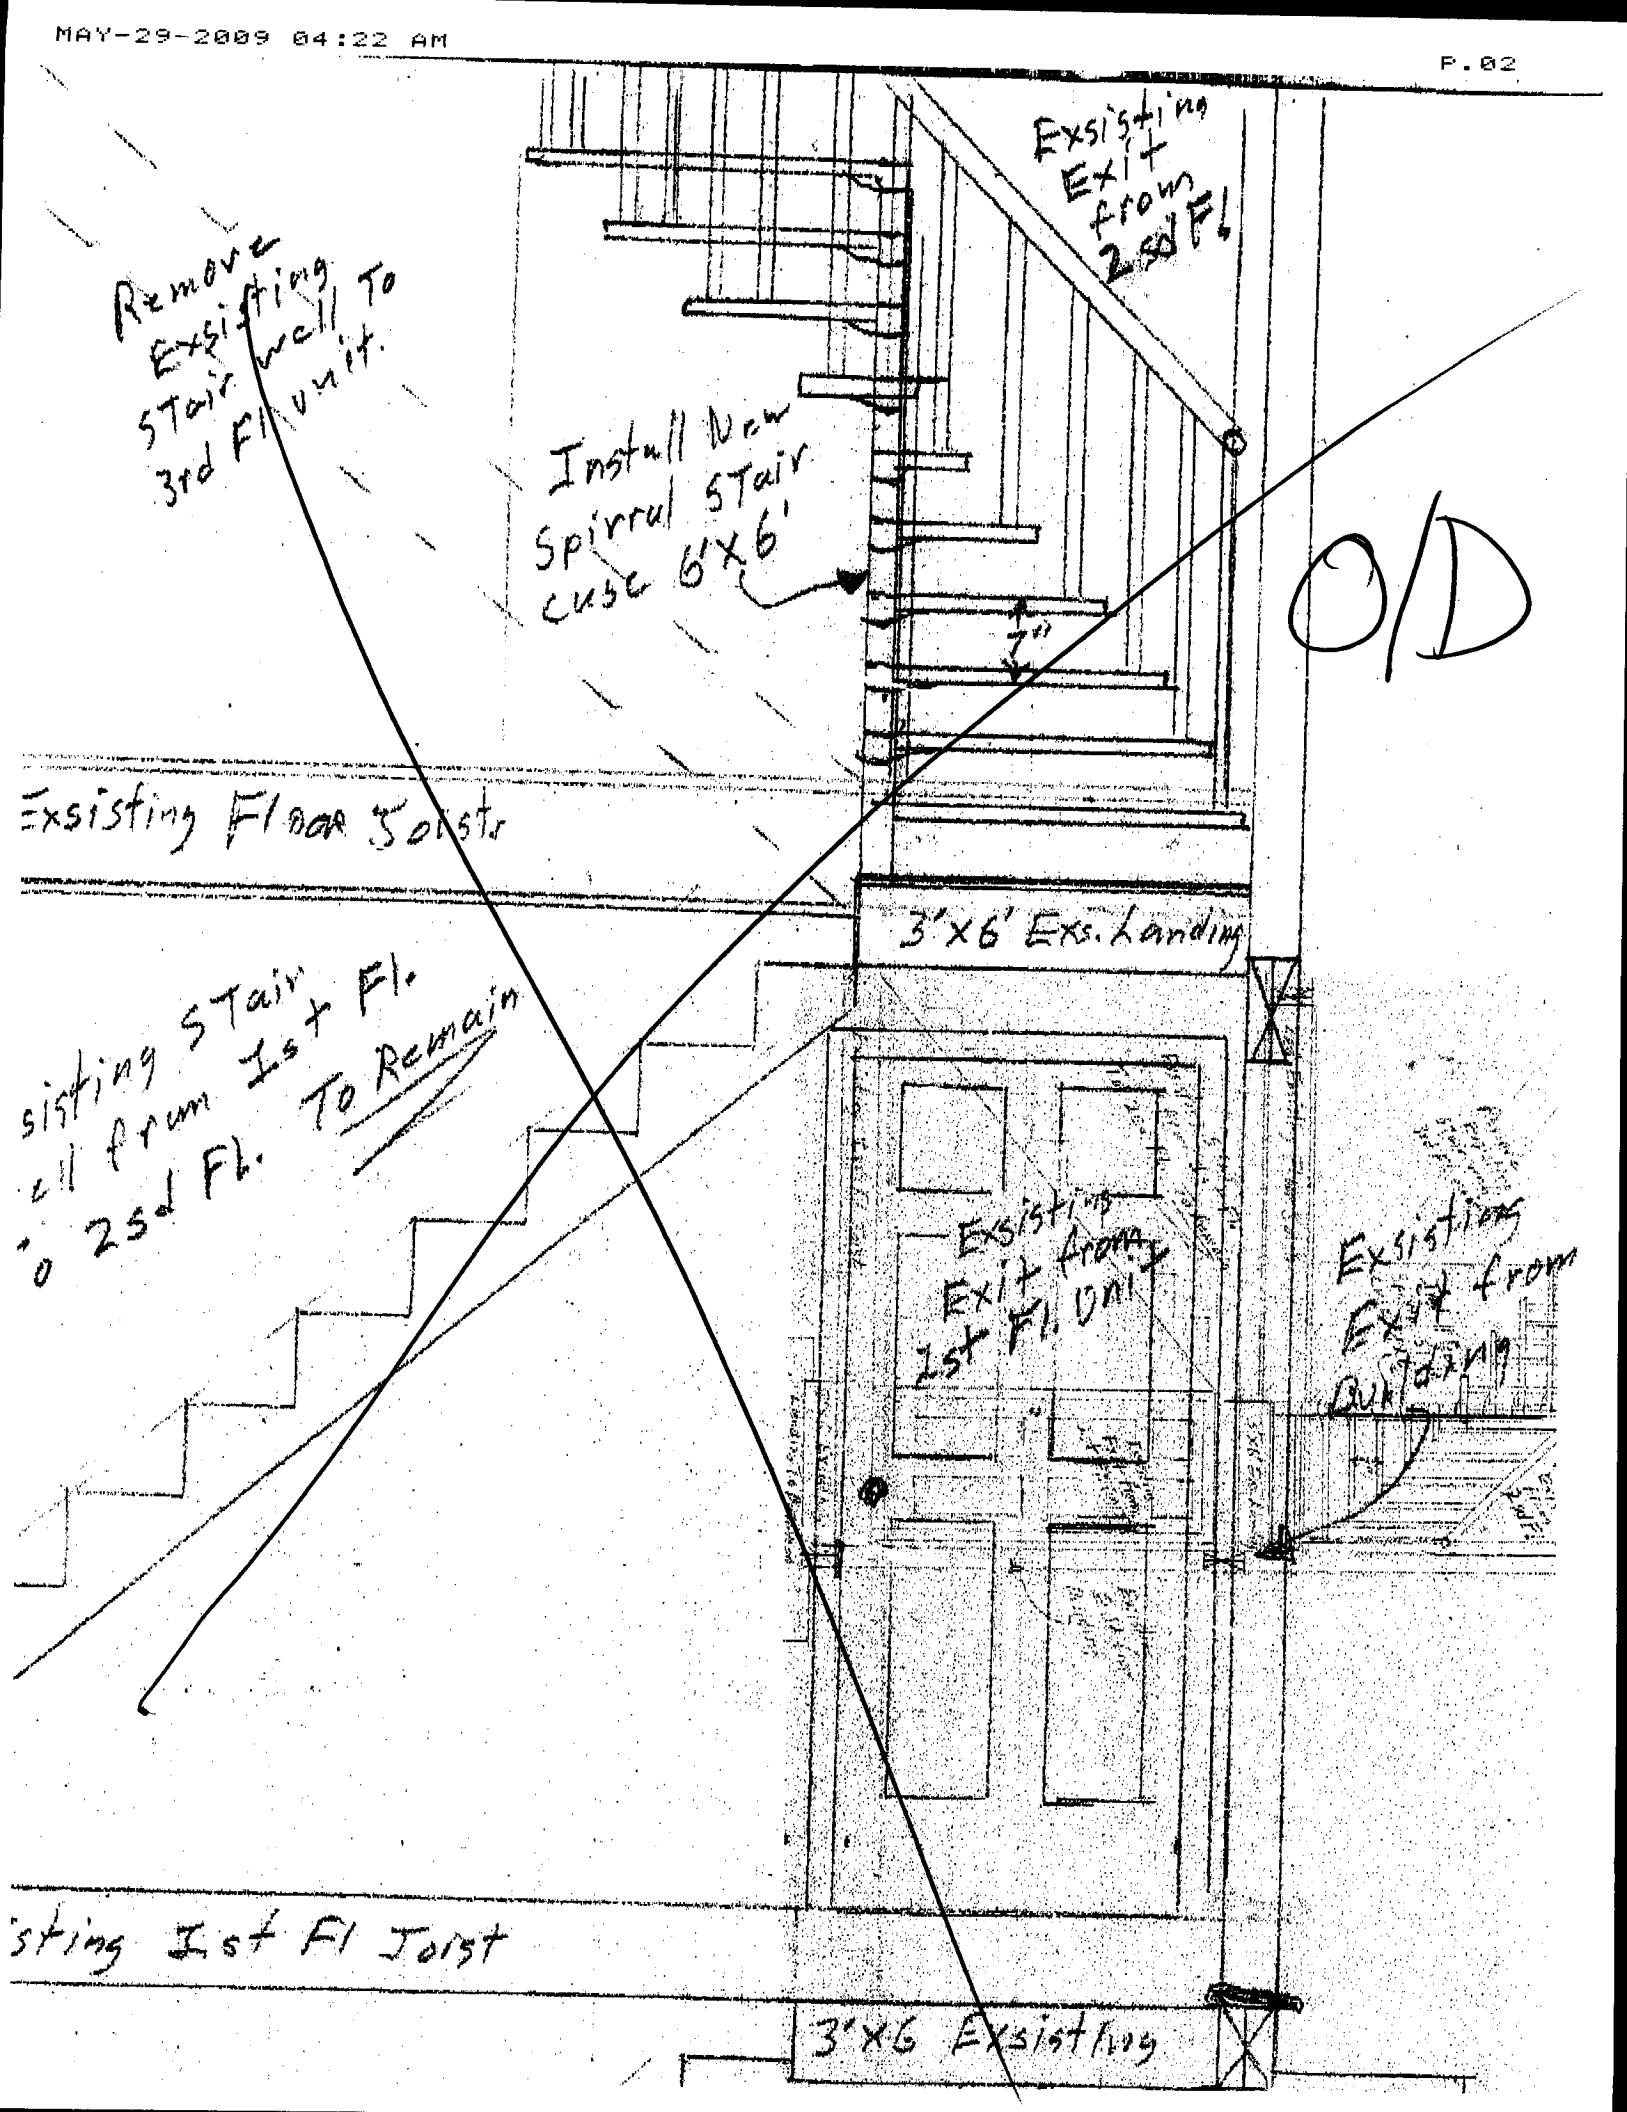 MAY-29-2009 04:22 AM
P.02
Exsisting
Exit
from
2sd Fl
Remove
Exsisting
STair well To
3rd Fl unit.
Install New
Spirral STair
case 6'X6'
O/D
7"
Exsisting Floor Joists
3'X6' Exs. Landing
sisting STair
ell from Ist Fl.
o 2sd Fl. To Remain
Exsisting
Exit from
Ist Fl. Unit
Exsisting
Exit from
Building
isting Ist Fl Joist
3'X6 Exsisting